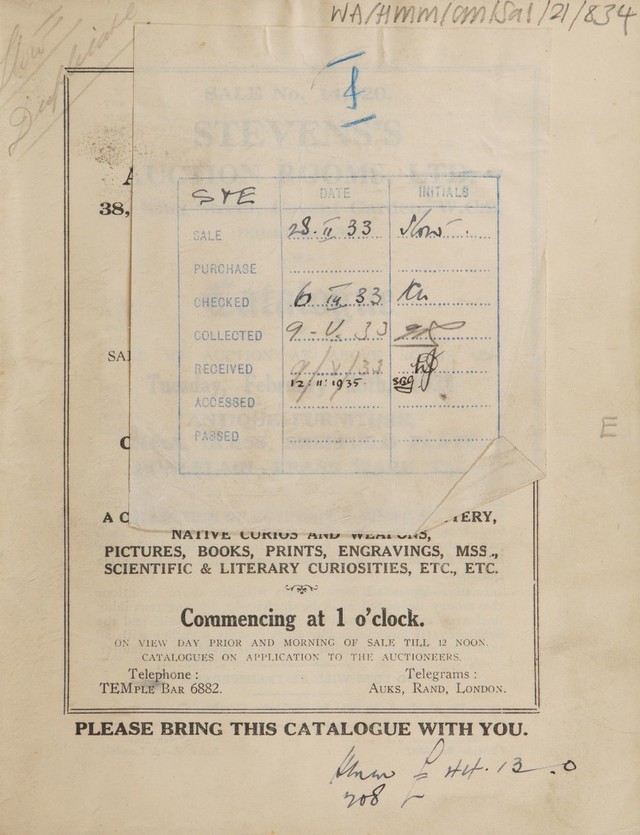 WA/HMM/CM/Sal/21/834
Duplicate
I
SALE No.
STEVENS'S
AUCTION ROOMS, LTD.
38,
STE
DATE
INITIALS
SALE 28. II 33
PURCHASE
CHECKED 6 III 33
COLLECTED 9-V. 33
RECEIVED 9/V/33
12.11.1935
ACCESSED
PASSED
E
A C
TERY,
NATIVE CURIOS AND WEAPONS,
PICTURES, BOOKS, PRINTS, ENGRAVINGS, MSS.,
SCIENTIFIC & LITERARY CURIOSITIES, ETC., ETC.
Commencing at 1 o'clock.
ON VIEW DAY PRIOR AND MORNING OF SALE TILL 12 NOON.
CATALOGUES ON APPLICATION TO THE AUCTIONEERS.
Telephone : Telegrams :
TEMple Bar 6882. Auks, Rand, London.
PLEASE BRING THIS CATALOGUE WITH YOU.
£ 44.13.0
208